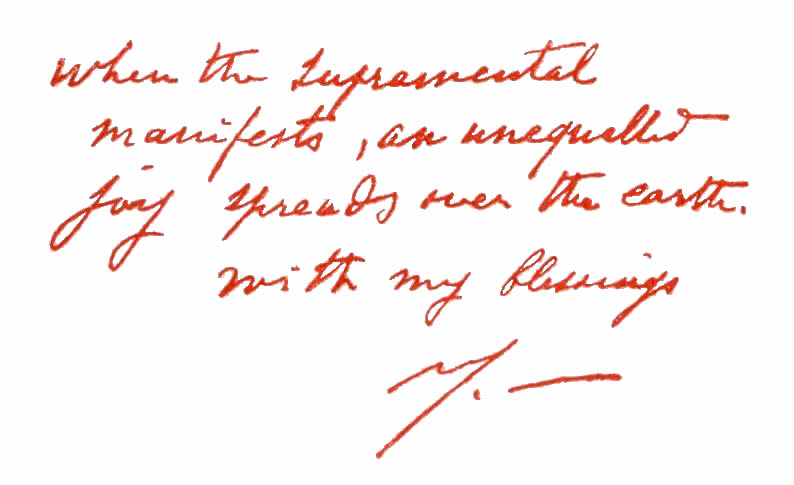 When the Supramental
manifests, an unequalled
joy spreads over the earth.
with my blessings